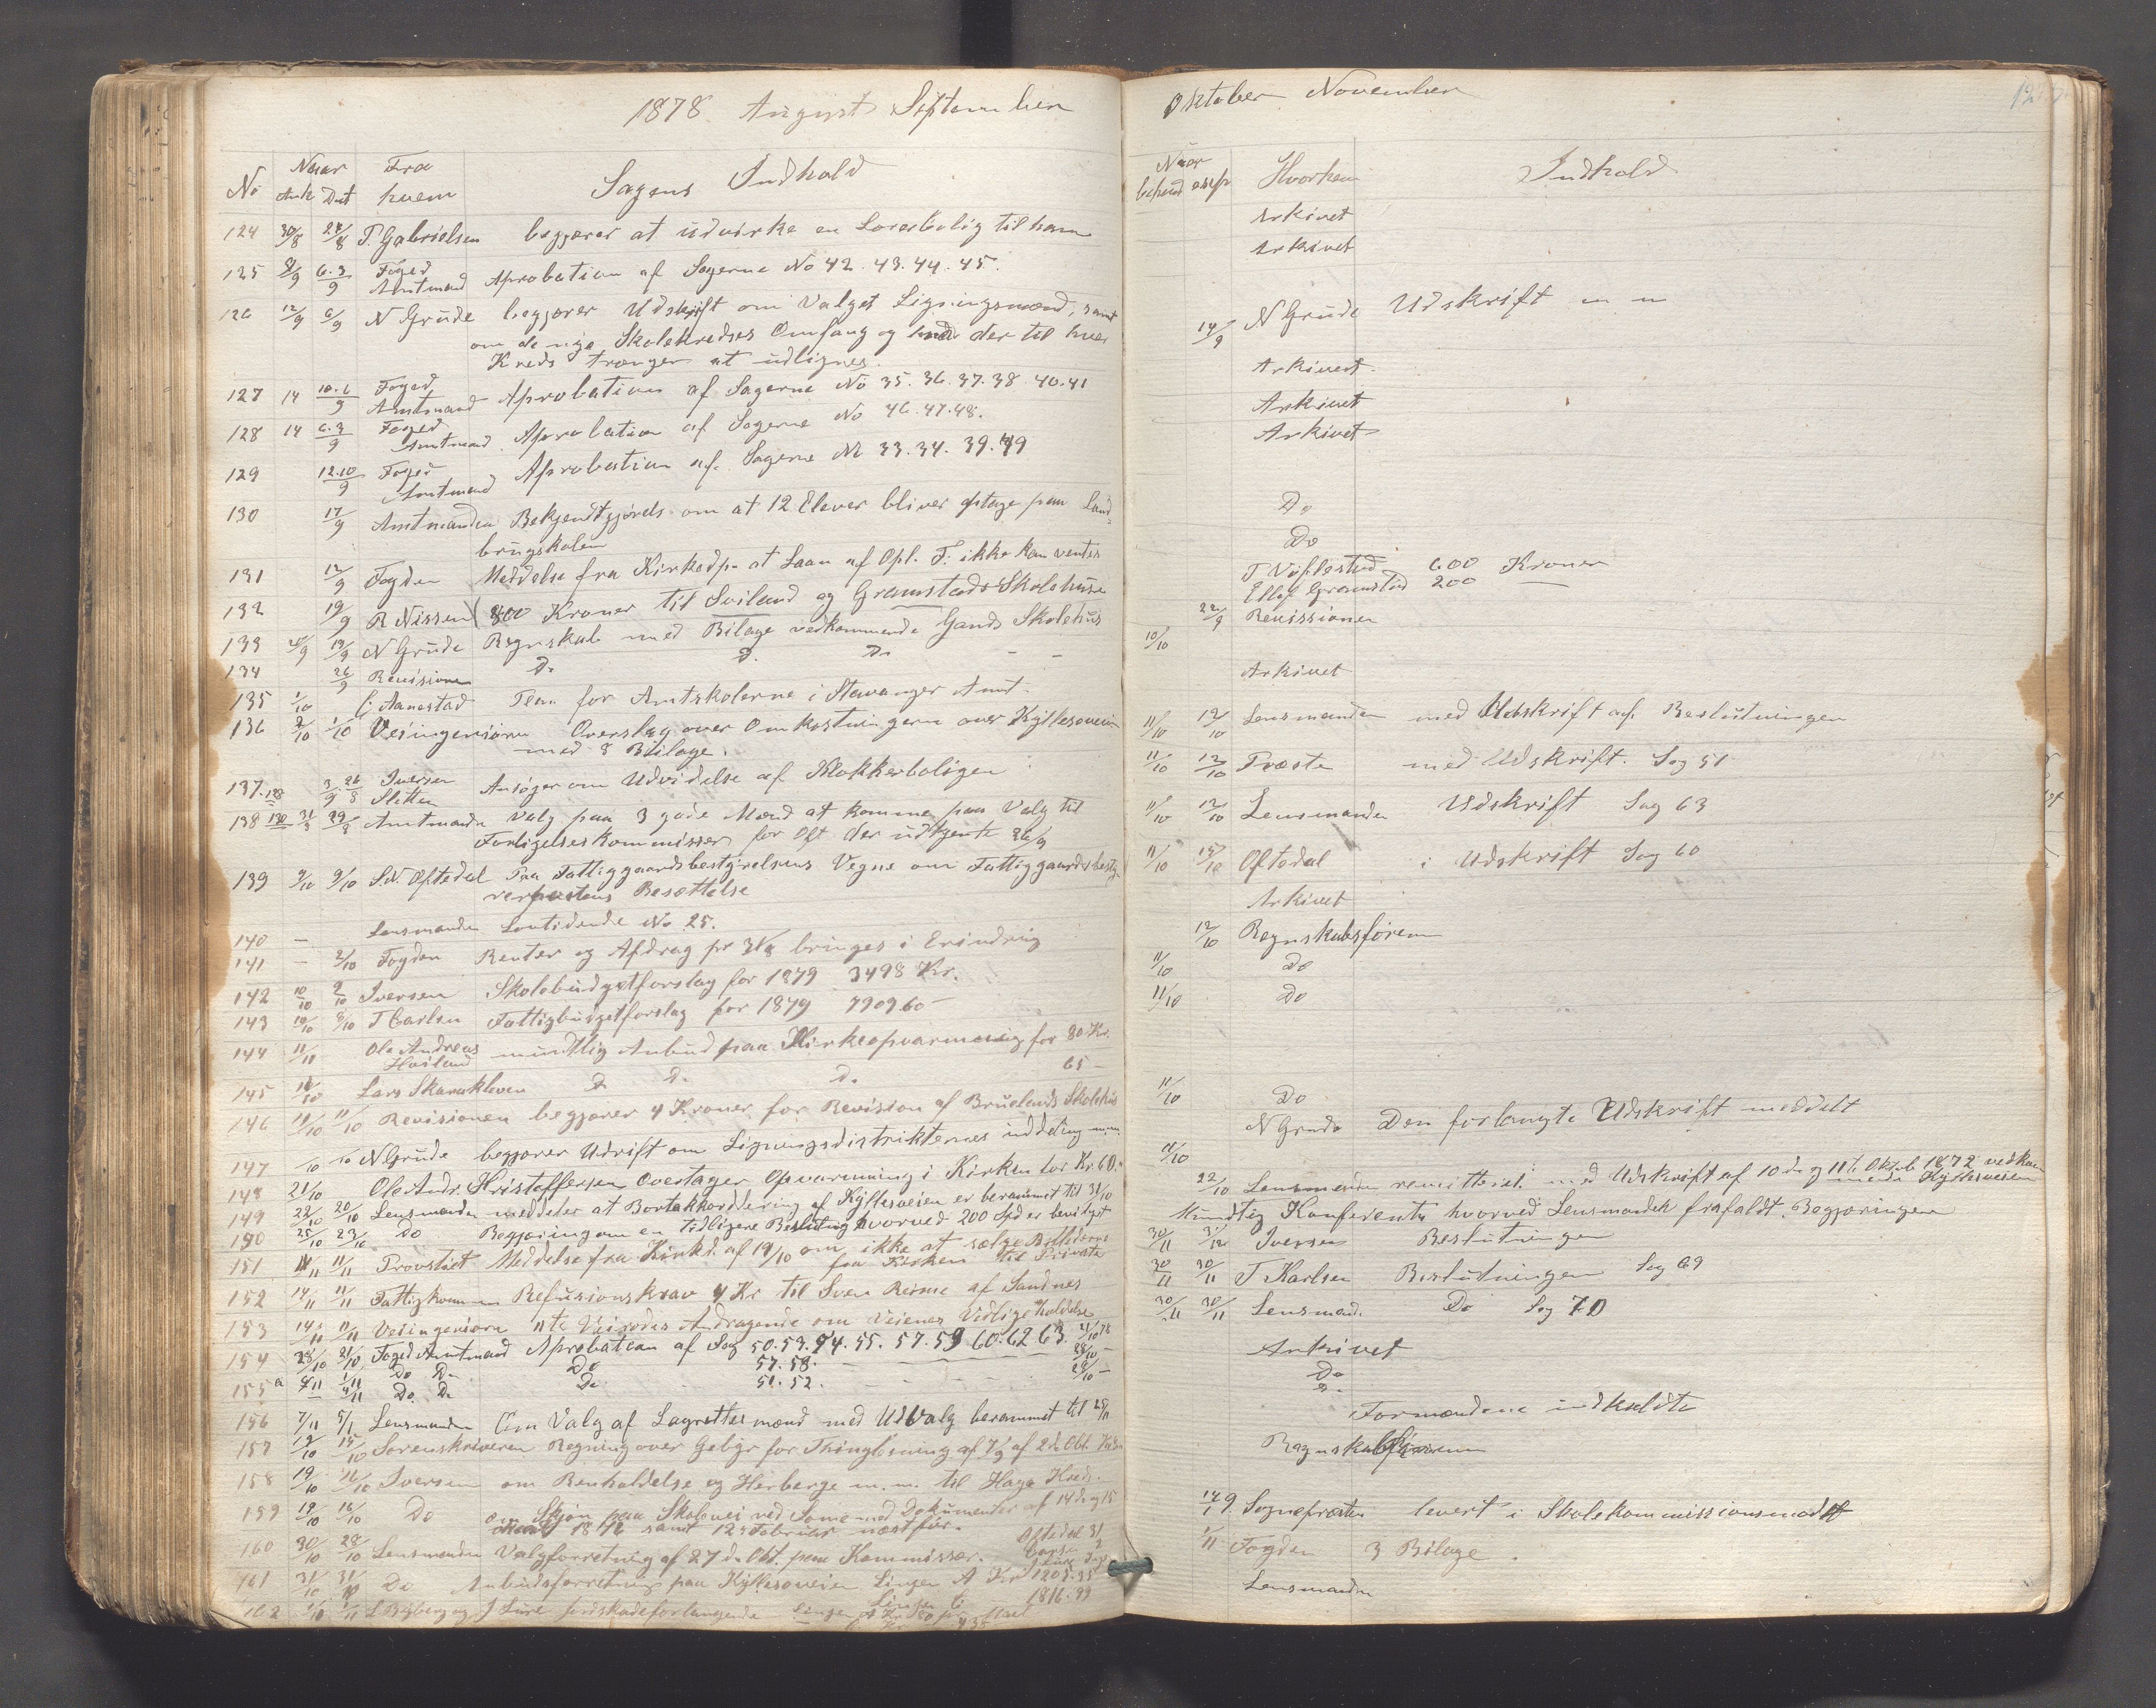 1878. August September
No Naar Fra
Ank Dat hvem Sagens Indhold
124 30/8 24/8 T. Gabrielsen begjærer at udvirke en Lærerbolig til ham
125 9/9 6.3/9 Foged Amtmand Aprobation af Sagerne No 42. 43. 44. 45.
126 12/9 6/9 N Grude begjærer Udskrift om Valget Ligningsmænd, samt
om de nye Skolekredses Omfang og hvad der til hver
Kreds trænger at udlignes.
127 14 10.6/9 Foged Amtmand Aprobation af Sagerne No 35. 36. 37. 38 40. 41
128 14 6.3/9 Foged Amtmand Aprobation af Sagerne No 46. 47. 48.
129 12.10/9 Foged Amtmand Aprobation af Sagerne No 33. 34. 39. 49
130 17/9 Amtmanden Bekjendtgjørels om at 12 Elever bliver optage paa Land-
brugskolen
131 12/9 Fogden Meddelse fra Kirkedp. at Laan af Opl. F. ikke kan ventes
132 19/9 R Nissen 800 Kroner til Soiland og Gramstads Skolehuse
133 19/9 N Grude Regnskab med Bilage vedkommende Gands Skolehus
134 26/9 Revisionen Do D. Do - -
135 1/10 Aanestad Plan for Amtskolerne i Stavanger Amt.
136 2/10 1/10 Veiingeniørn Overslag over Omkostningerne over Kyllesveien
med 8 Bilage.
137. 3/9 26/8 Iversen Sletten Ansøger om Udvidelse af Klokkerboligen
138 130 31/8 29/8 Amtmandn Valg paa 3 gode Mænd at komme paa Valg til
Forligelseskommissær for Oft der udtjente
139 9/10 9/10 S. N. Oftedal Paa Fattiggaardsbestyrelsens Vegne om Fattiggaardsbesty-
rerpostens Besættelse
140 - Lensmanden Lovtidende No 25.
141 - 2/10 Fogden Renter og Afdrag pr bringes i Erindring
142 10/10 9/10 Iversen Skolebudgetforslag for 1879 3498 Kr.
143 10/10 8/10 T Carlsen Fattigbudgetforslag for 1879 7909 60 -
144 11/11 Ole Andreas Høiland mundtlig Anbud paa Kirkeopvarmning for 80 Kr.
145 11/10 Lars Skaraskleven D. D. D. 65 -
146 11/10 11/10 Revisionen begjærer 4 Kroner for Revision af Bruelands Skolehus
147 /10 /10 N Grude begjærer Udrift om Ligningsdistrikternes inddeling m.m.
148 21/10 Ole Andr. Kristoffersen Overtager Opvarmning i Kirken for Kr. 60.
149 22/10 20/10 Lensmanden meddeler at Bortakkordering af Kyllesveien er berammet til 31/10
150 25/10 23/10 Do Begjæring om en tidligere Beslutning hvorved 200 Spd er bevilget
151 11/11 11/11 Provstiet Meddelse fra Kirkd. af 19/10 om ikke at sælge Billederne
fra Kirken til Private
152 14/11 11/11 Fattigkommn Refusionskrav 4 Kr til Sven Reime af Sandnes
153 14/11 11/11 Veiingeniørn 11te Veirodes Andragende om Veienes Vedligeholdelse
154 28/10 21/10 Foged Amtmand Aprobation af Sag 50. 53. 54. 55. 57. 59 60. 62 63. 21/10 78
155 a 4/11 1/11 Do D. Do 57. 58. - 28/10 -
4/11 Do. Do Do 51. 52. - 29/10 -
156 7/11 5/11 Lensmanden Om Valg af Lagrettesmænd med Udvalg berammet til 25/11
157 19/10 15/10 Sorenskriveren Regning over Gebyr for Thinglæsning af af 2d Obl.
158 19/10 16/10 Iversen om Renholdelse og Herberge m. m. til Hage Kreds.
159 19/10 16/10 Do om Skjøn paa Skolevei ved Some med Dokumenter af 14d og 15
samt 12 Februar næstfør.
160 30/10 28/10 Lensmanden Valgforretning af 27d Okt. paa Kommissær. Oftedal 31
161 31/10 31/10 Do Anbudsforretning paa Kyllesveien Linjen A Kr 1205. 35
Linjen C 1816. 99
162 L Byberg og J Lure jordskadeforlangende Linjen A
Oktober November
Naar
behand exsp Hvorhen Indhold
Arkivet
Arkivet
14/9 N Grude Udskrift m m
Arkivert.
Arkivet
Arkivet
Do
Do
T Vølstad 600 Kroner
Ellef Gramstad 200 —
22/9 Revissionen
10/10
Arkivet
11/10 12/10 Lensmanden med Udskrift af Beslutningen
11/10 12/10 Præsten med Udskrift. Sag 51
11/10 12/10 Lensmanden Udskrift Sag 63
11/10 15/10 Oftedal i Udskrift Sag 60
Arkivet
12/10 Regnskabsføreren
11/10 Do
11/10 Do
11/10 Do
N Grude Den forlangte Udskrift meddelt
11/10
22/10 Lensmanden remitteret med Udskrift af 10de og 11te Oktob 1872 vedkom-
mende Kyllesveien
Mundtlig Konferents hvorved Lensmanden frafaldt Begjæringen
30/11 3/12 Iversen Beslutningen
30/11 30/11 T Karlsen Beslutningen Sag 69
30/11 30/11 Lensmand. Do Sag 70
Arkivet
Do
D.
Formændene indkaldte
Regnskabsføreren
Sognepræsten levert i Skolekommissionsmødet
1/11 Fogden 3 Bilage.
Lensmanden